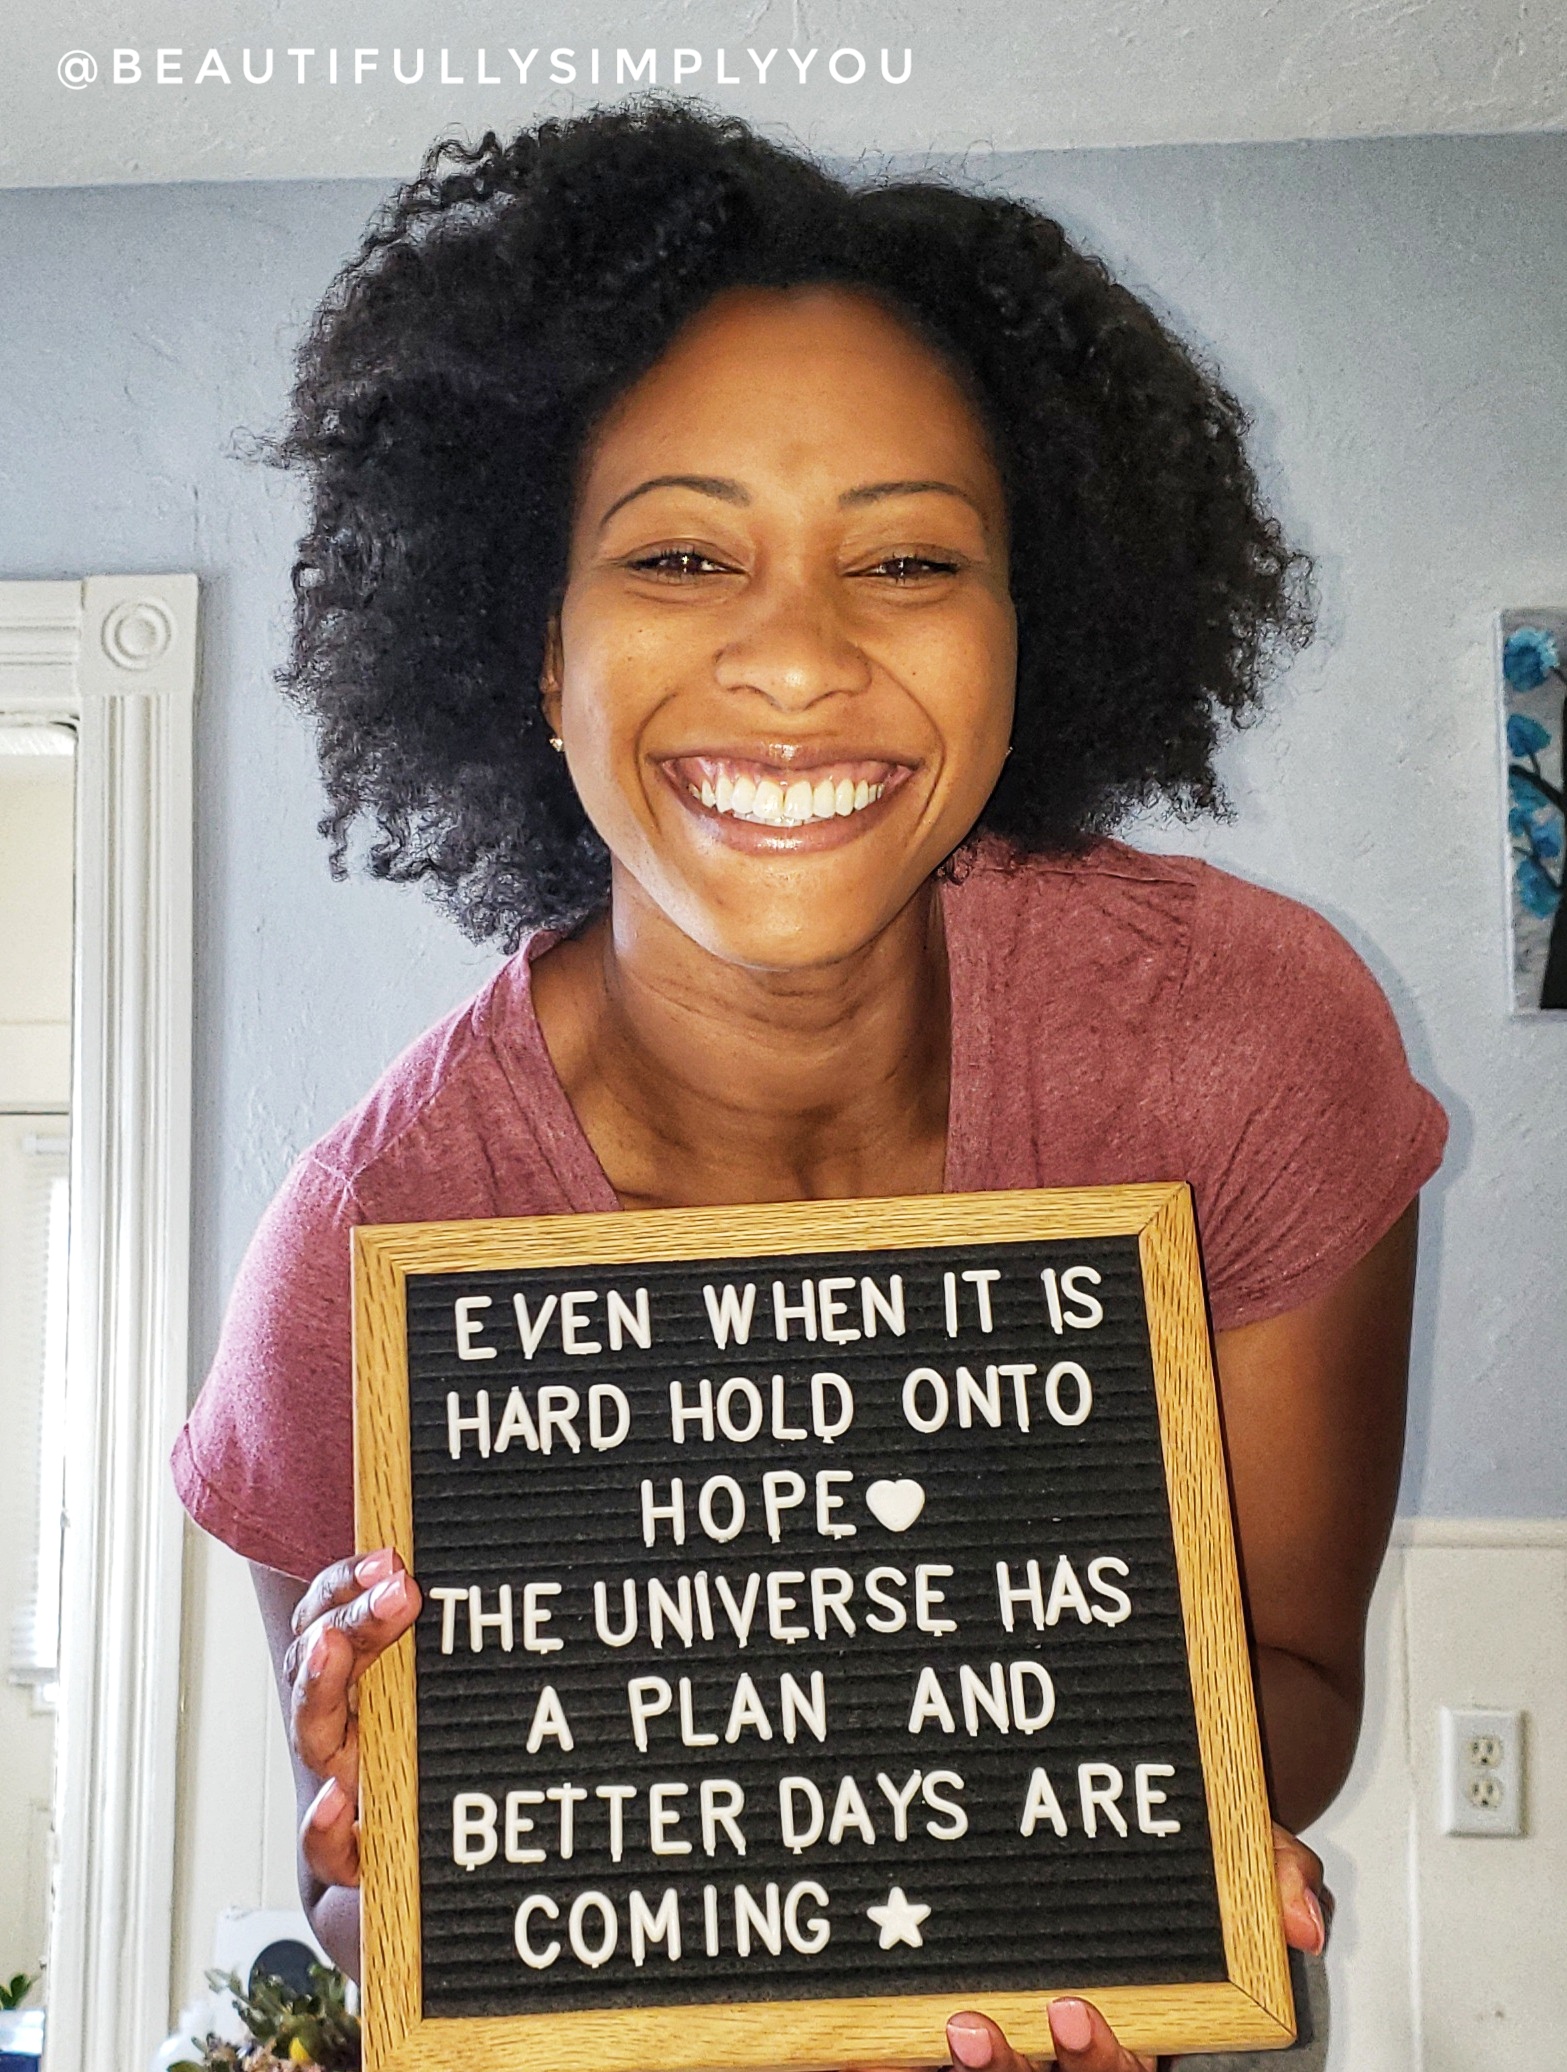 @BEAUTIFULLYSIMPLYYOU
EVEN WHEN IT IS
HARD HOLD ONTO
HOPE♥
THE UNIVERSE HAS
A PLAN AND
BETTER DAYS ARE
COMING ★